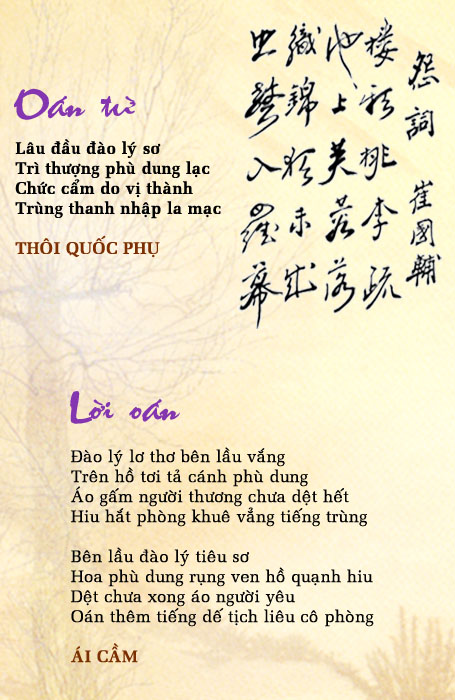 Oán từ
Lâu đầu đào lý sơ
Trì thượng phù dung lạc
Chức cẩm do vị thành
Trùng thanh nhập la mạc
THÔI QUỐC PHỤ
怨詞 崔國輔
楼頭桃李疏
池上芙蓉落
織錦猶未成
虫聲入羅幕
Lời oán
Đào lý lơ thơ bên lầu vắng
Trên hồ tơi tả cánh phù dung
Áo gấm người thương chưa dệt hết
Hiu hắt phòng khuê vẳng tiếng trùng
Bên lầu đào lý tiêu sơ
Hoa phù dung rụng ven hồ quạnh hiu
Dệt chưa xong áo người yêu
Oán thêm tiếng dế tịch liêu cô phòng
ÁI CẦM